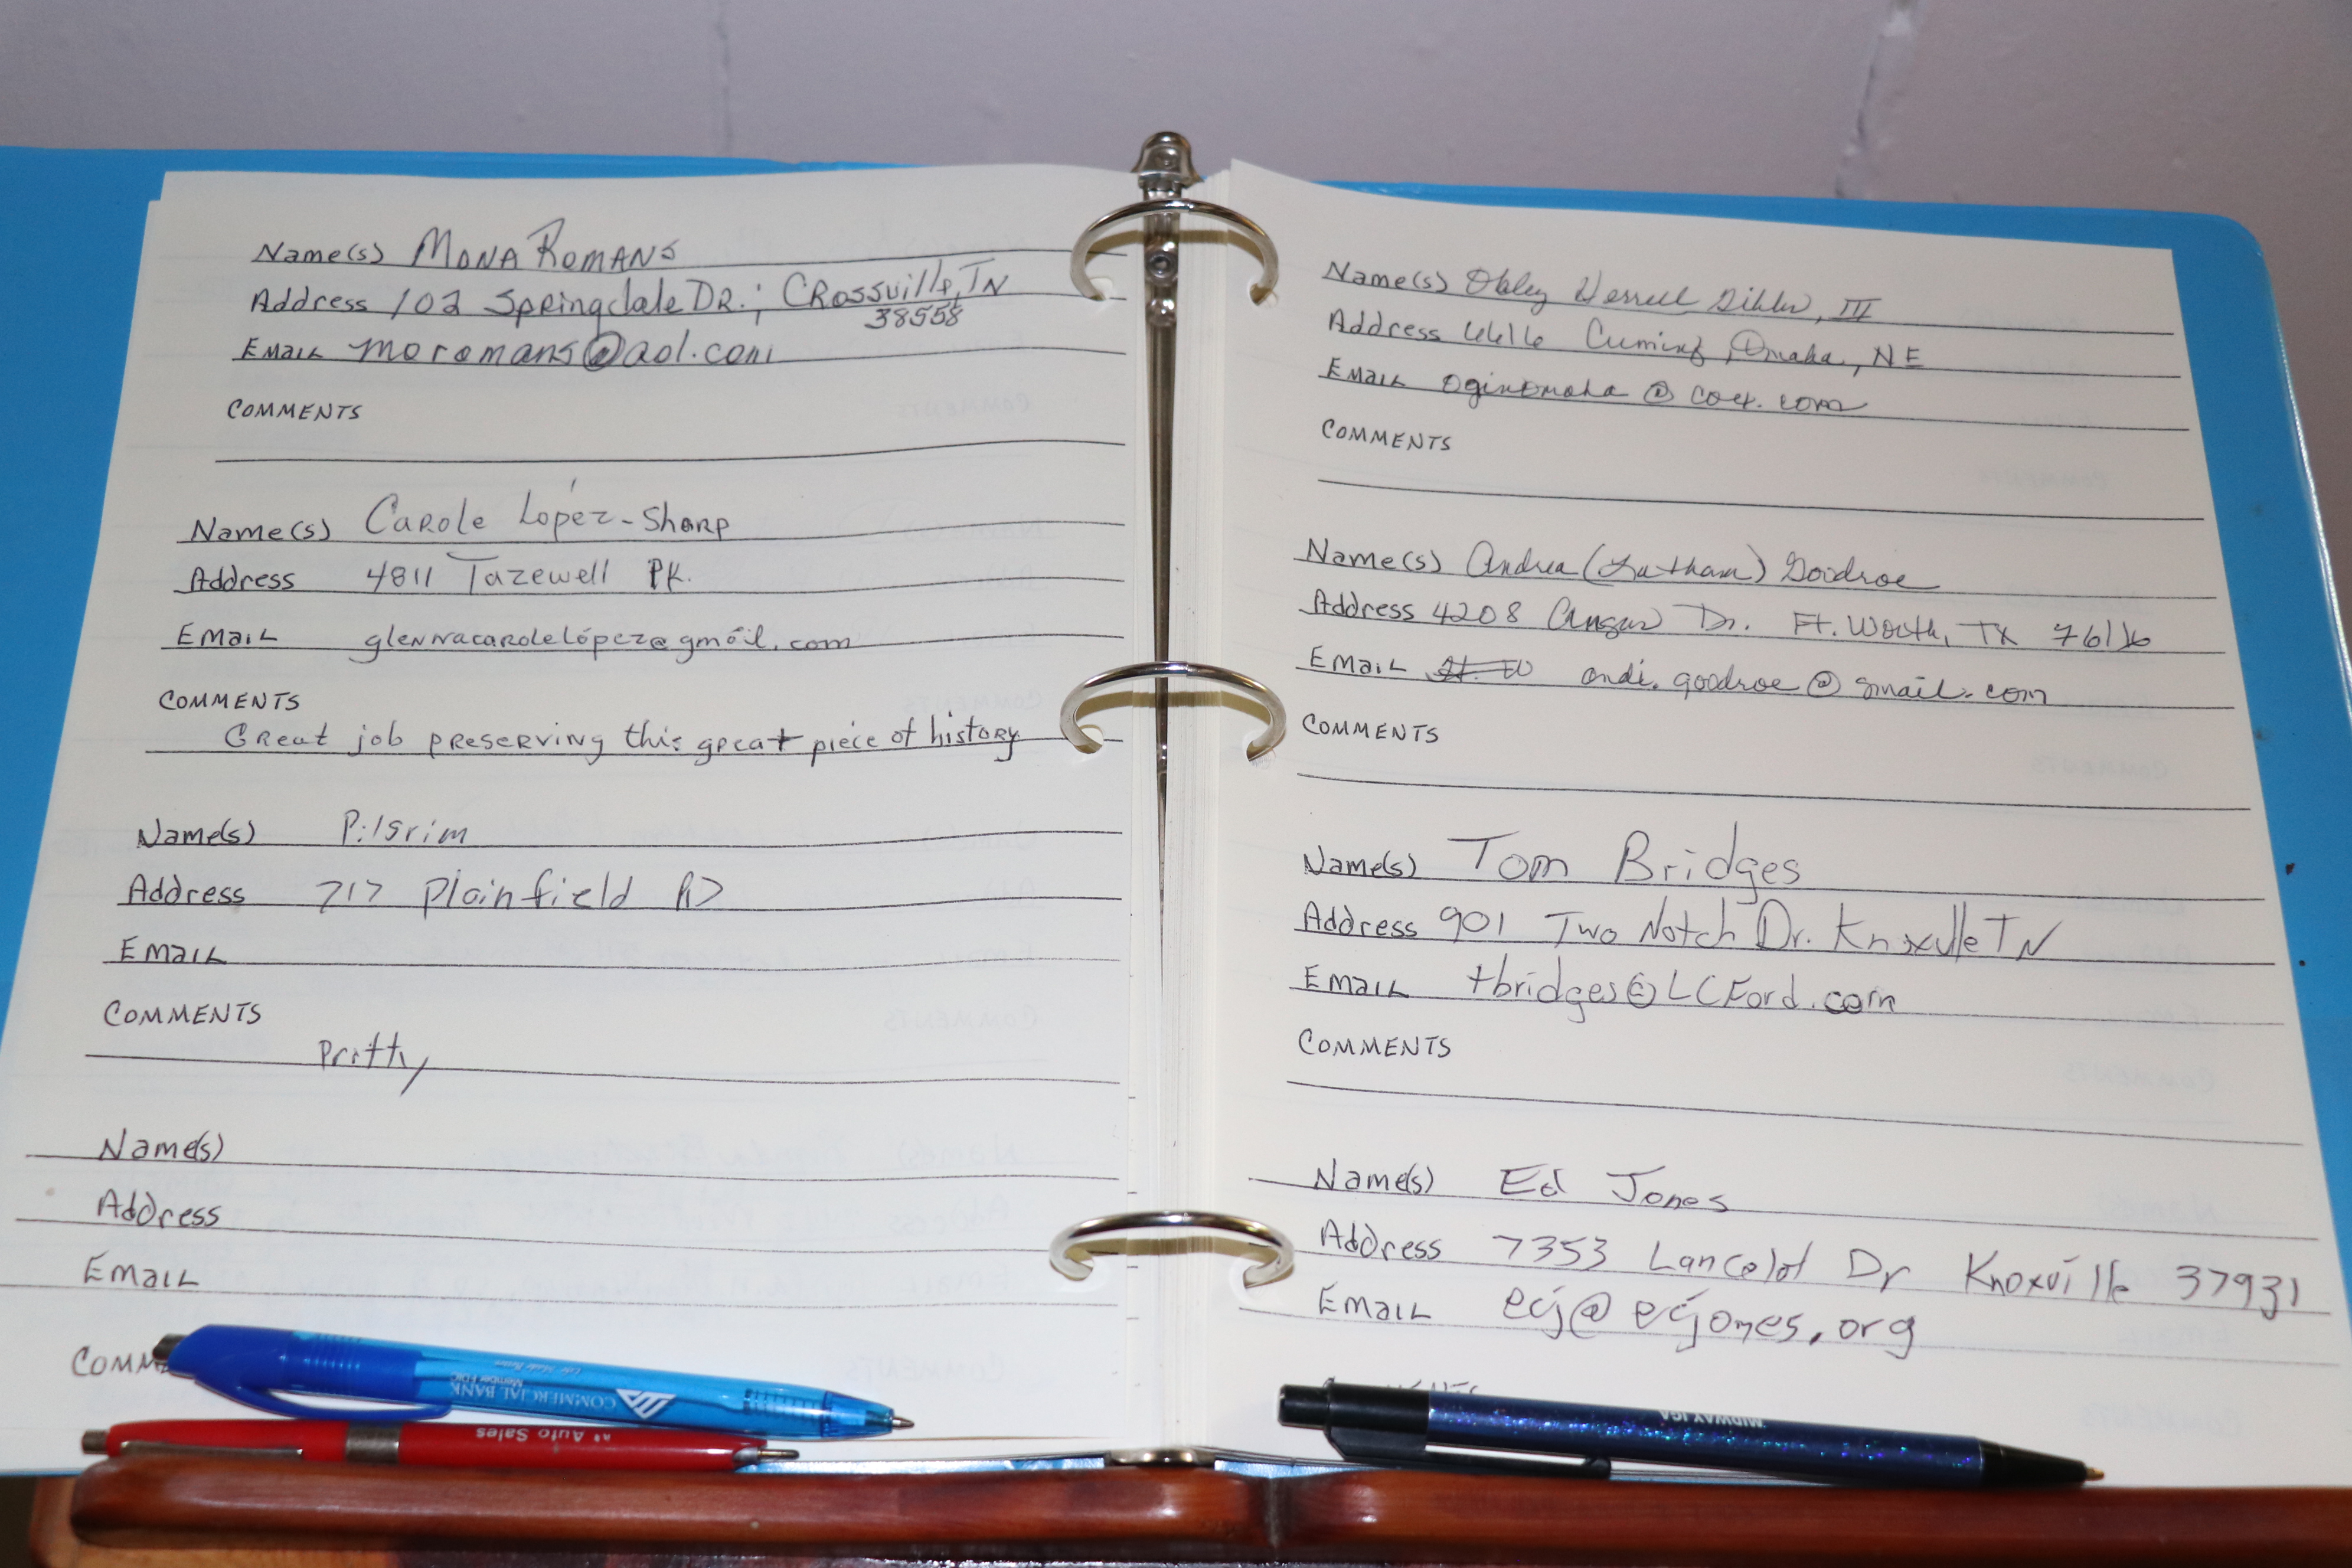 Name(s) Mona Romans
Address 102 Springdale DR.; Crossville, TN
38558
Email moromans@aol.com
Comments
Name(s) Carole López-Sharp
Address 4811 Tazewell PK.
Email glennacarolelópez@gmail.com
Comments
Great job preserving this great piece of history
Name(s) Pilgrim
Address 717 Plainfield RD
Email
Comments
Pritty
Name(s)
Address
Email
Comm
Name(s) III
Address 6616 Cuming, Omaha, NE
Email oginomaha@cox.com
Comments
Name(s) Andrea (Latham) Goodroe
Address 4208 Dr. Ft. Worth, TX 76116
Email andi.goodroe@gmail.com
Comments
Name(s) Tom Bridges
Address 901 Two Notch Dr. Knoxville TN
Email tbridges@LCFord.com
Comments
Name(s) Ed Jones
Address 7353 Lancelot Dr Knoxville 37931
Email ecj@ecjones.org
COMMERCIAL BANK
Member FDIC
Auto Sales
MIDWAY IGA